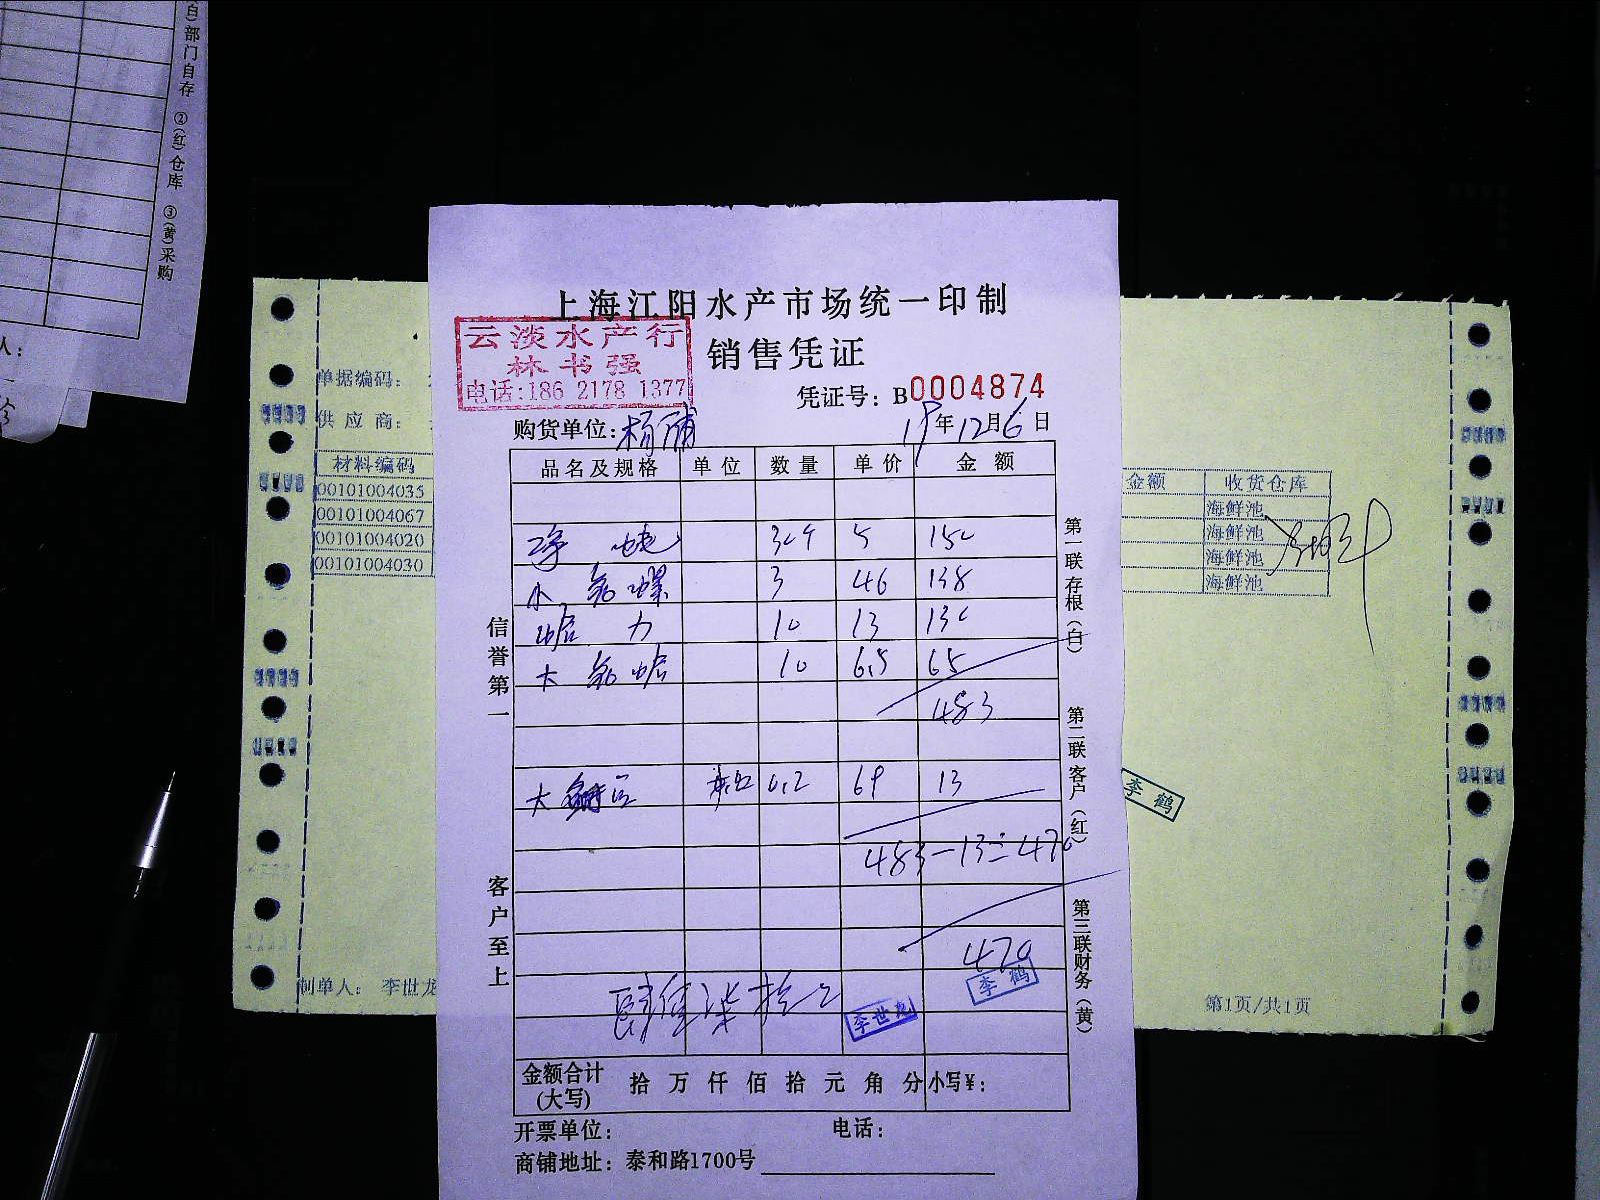 白)部门自存 ②(红)仓库 ③(黄)采购
人:
上海江阳水产市场统一印制
销售凭证
云淡水产行
林书强
电话:186 2178 1377
凭证号: B0004874
购货单位: 杨浦
19年12月6日
品名及规格 单位 数量 单价 金额
净 5 150
3 46 138
蛤 力 10 13 130
大 蛤 10 6.5 65
483
大 0.2 69 13
483-13=470
470
肆佰柒拾
李世龙
李鹤
金额合计
(大写)
拾 万 仟 佰 拾 元 角 分 小写¥:
开票单位:
电话:
商铺地址: 泰和路1700号
信誉第一
客户至上
第一联存根(白)
第二联客户(红)
第三联财务(黄)
单据编码:
供应商:
材料编码
00101004035
00101004067
00101004020
00101004030
制单人: 李世龙
金额 收货仓库
海鲜池
海鲜池
海鲜池
海鲜池
李鹤
第1页/共1页